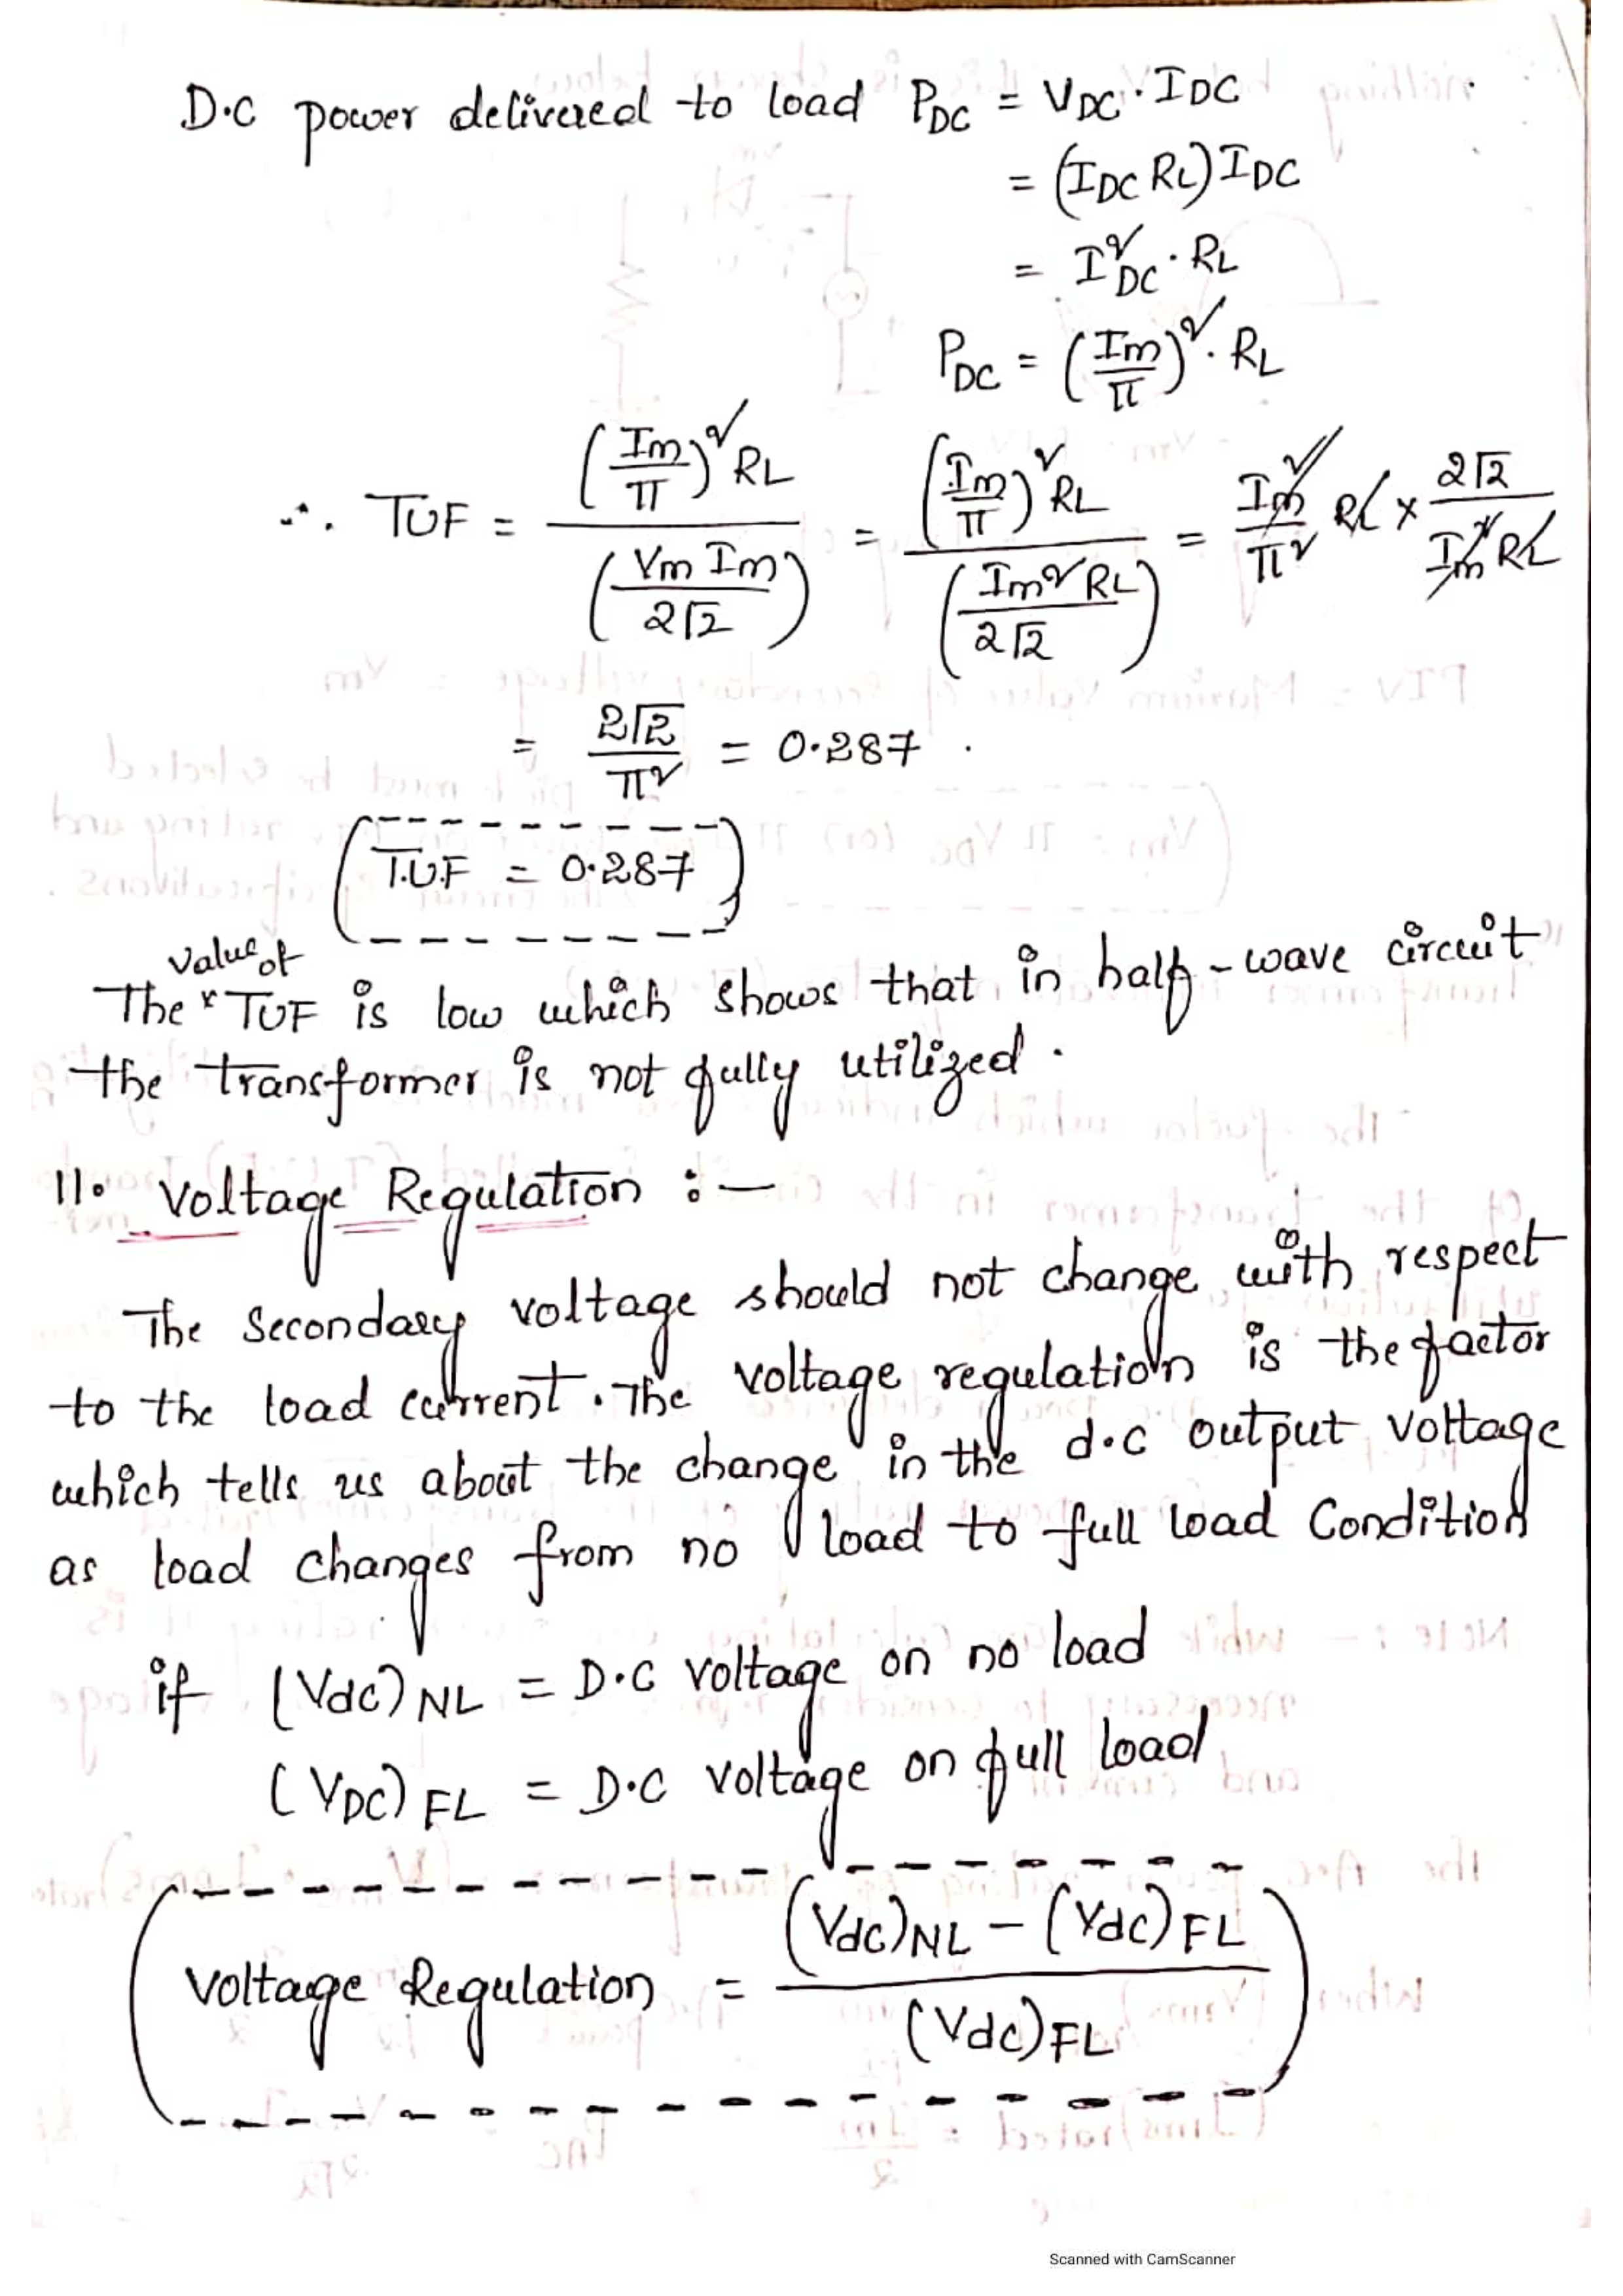 D.C power delivered to load P_DC = V_DC . I_DC
= (I_DC R_L) I_DC
= I²_DC . R_L
P_DC = (Im/π)² . R_L
∴ TUF = (Im/π)² RL / (Vm Im / 2√2) = (Im/π)² RL / (Im² RL / 2√2) = Im²/π² RL x 2√2 / Im² RL
= 2√2/π² = 0.287 .
T.U.F = 0.287
The value of TUF is low which shows that in half-wave circuit
the transformer is not fully utilized .
11. Voltage Regulation :-
The Secondary voltage should not change with respect
to the load current. The voltage regulation is the factor
which tells us about the change in the d.c output voltage
as load changes from no load to full load Condition
if (Vdc)NL = D.C voltage on no load
(VDC)FL = D.C voltage on full load
Voltage Regulation = (Vdc)NL - (Vdc)FL / (Vdc)FL
Scanned with CamScanner